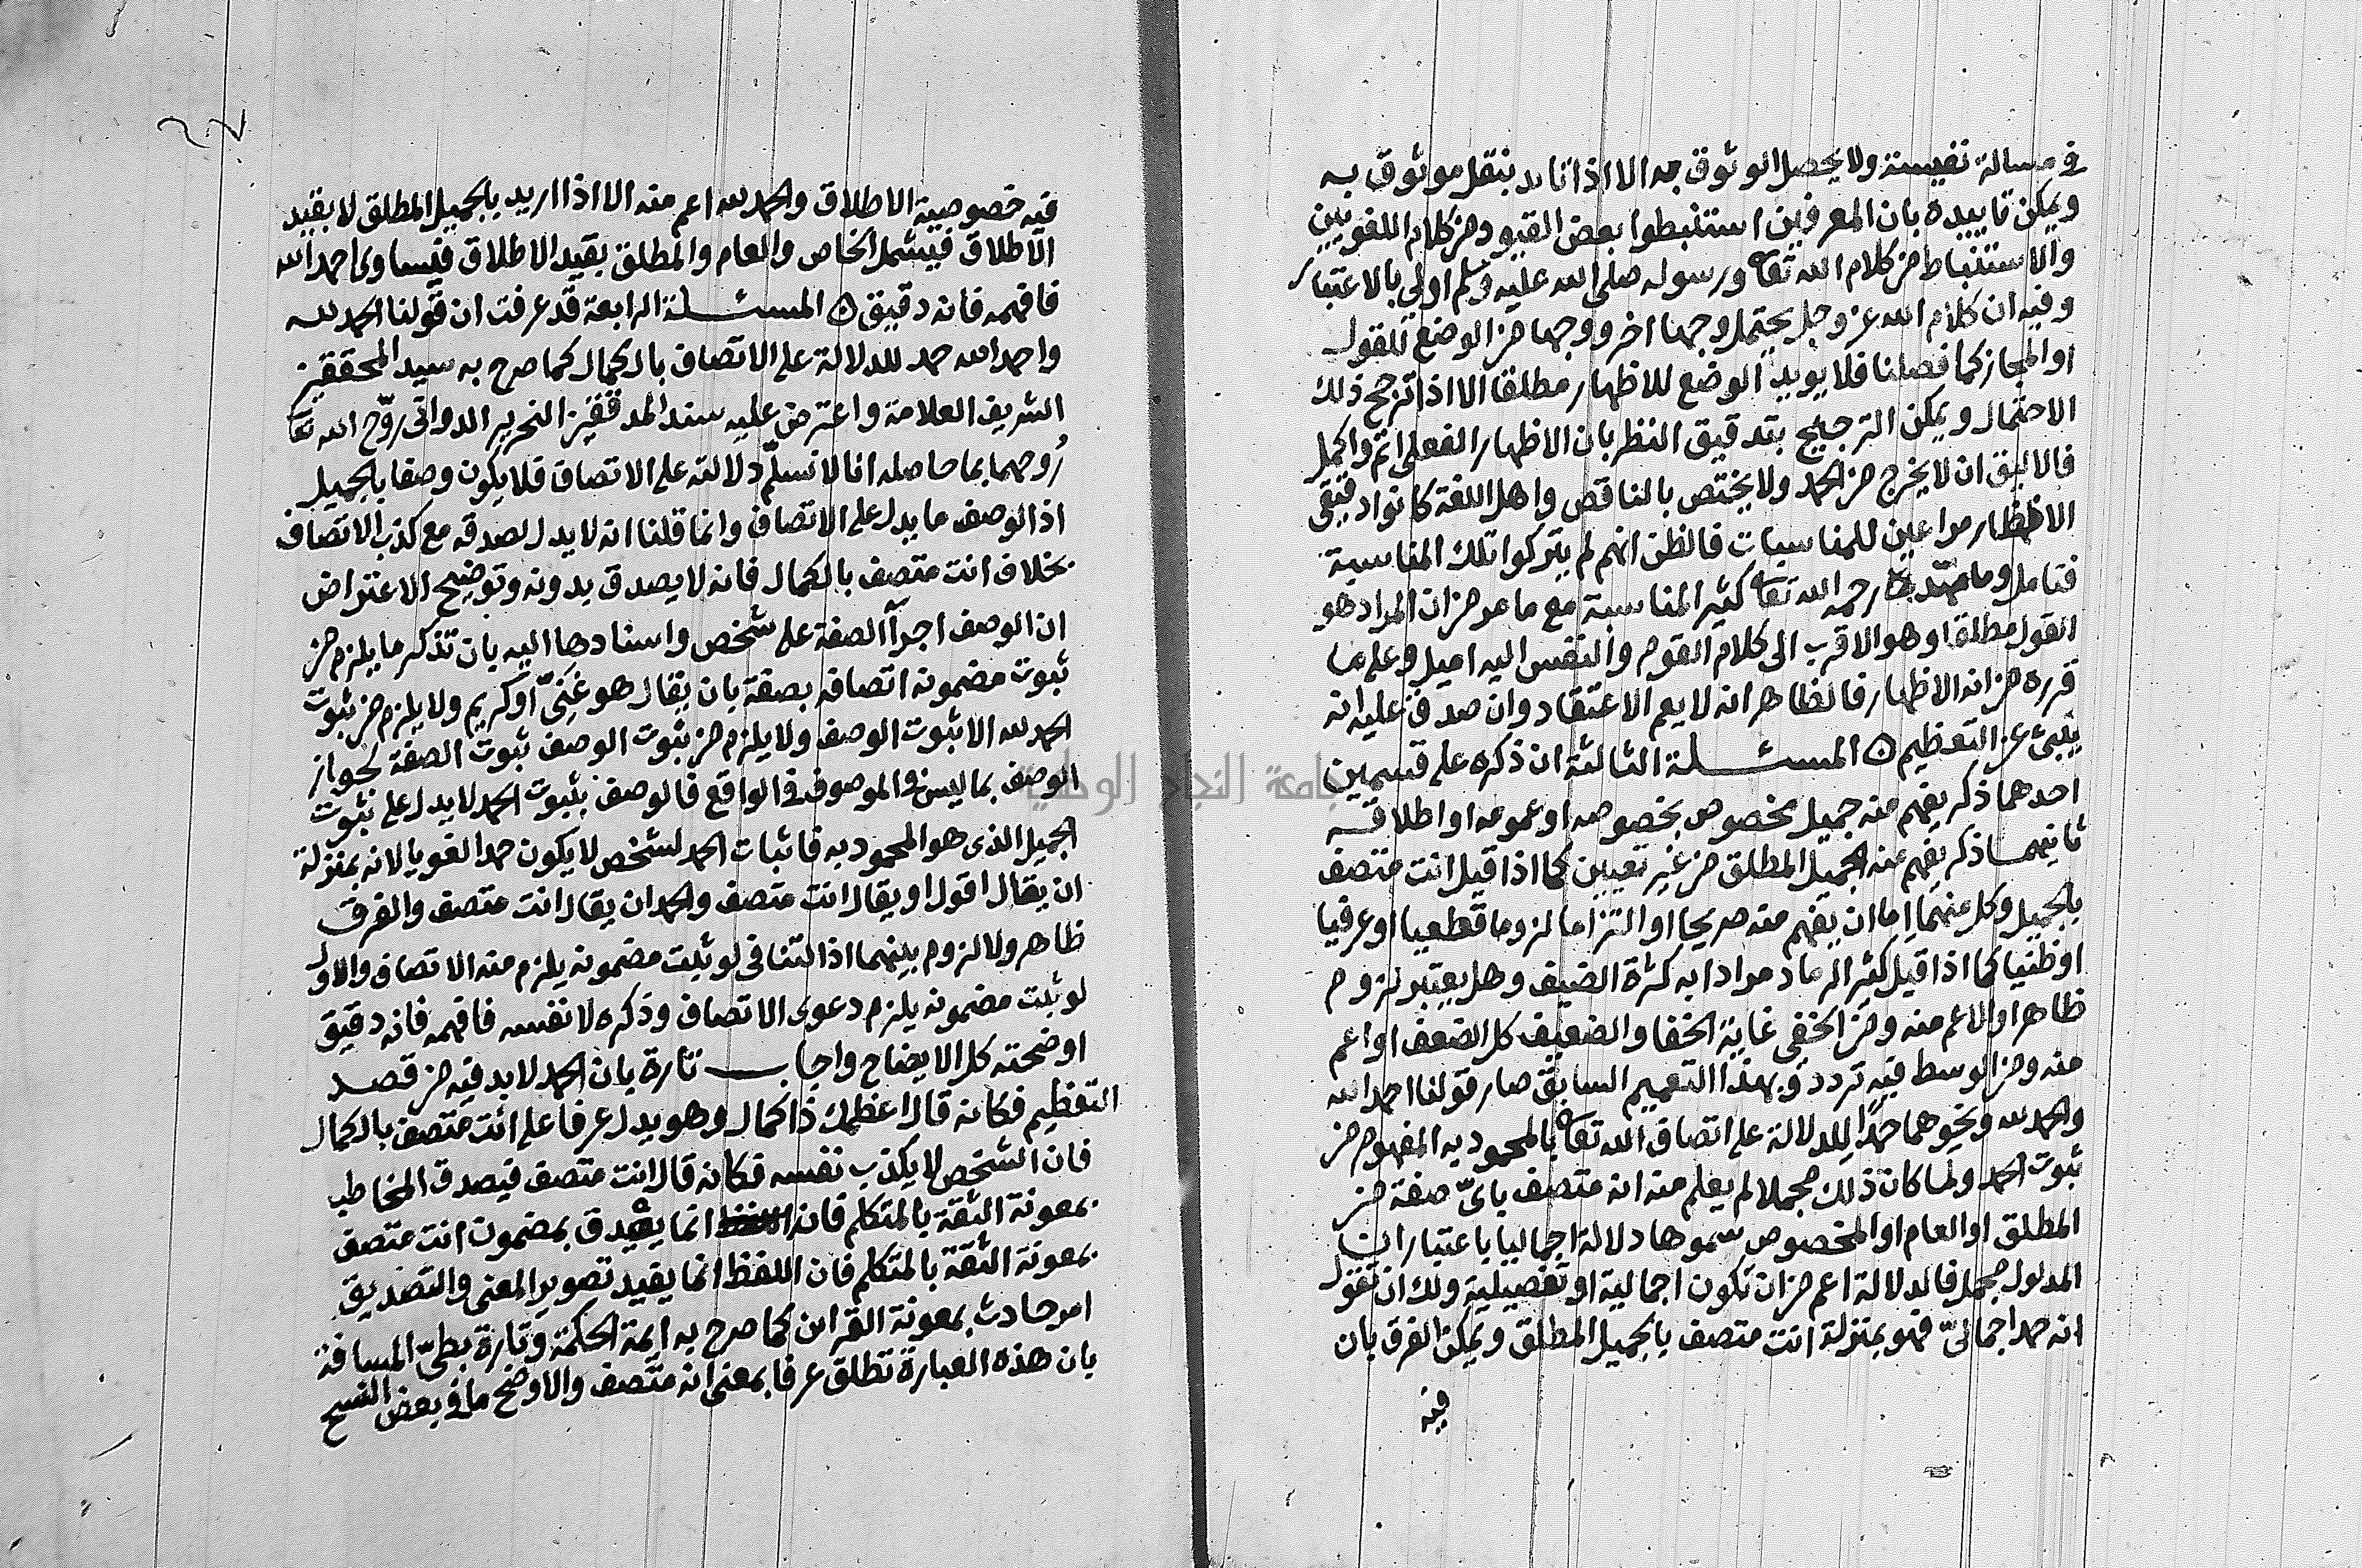 في مسالة نفيسة ولا يحصل الوثوق به الا اذا نايد بنقل موثوق به
ويمكن تاييده بان المعرفين استنبطوا بعض القيود من كلام اللغويين
والاستنباط من كلام الله تعا ورسوله صلى الله عليه وسلم اولي بالاعتبار
وفيه ان كلام الله عز وجل يحتمل وجها اخر ووجها من الوضع للقول
او المجاز كما فصلنا فلا يويد الوضع للاظهار مطلقا الا اذا ترجح ذلك
الاحتمال ويمكن الترجيح بتدقيق النظر بان الاظهار الفعلي اتم واكمل
فالاليق ان لا يخرج من الحمد ولا يختص بالناقص واهل اللغة كانوا دقيقي
الانظار مراعين للمناسبات فالظن انهم لم يتركوا تلك المناسبة
فتامل وما رحمه الله تعا كثير المناسبة مع ما مر من ان المراد هو
القول مطلقا وهو الاقرب الى كلام القوم والنفس اليه اميل وعلى ما
قرره من انه الاظهار فالظاهر انه لا يعم الاعتقاد وان صدق عليه انه
ينبئ عن التعظيم ٥ المسئلة الثالثة ان ذكره على قسمين
احدهما ذكر يفهم منه جميل مخصوص بخصوصه او عمومه او اطلاقه
ثانيهما ذكر يفهم منه الجميل المطلق من غير تعيين كما اذا قيل انت متصف
بالجميل وكل منهما اما ان يفهم منه صريحا او التزاما لزوما قطعيا او عرفيا
او ظنيا كما اذا قيل كثير الرماد مرادا به كثرة الضيف وهل يعتبر لزوم
ظاهرا والاعم منه ومن الخفي غاية الخفا والضعيف كل الضعف او اعم
منه ومن الوسط فيه تردد وبهذا التعميم السابق صار قولنا احمد الله
والحمد لله ونحوهما حمدًا للدلالة على اتصاف الله تعا بالمحمود به المفهوم من
ثبوت الحمد ولما كان ذلك مجملا لم يعلم منه انه متصف باىّ صفة من
المطلق او العام او المخصوص سموها دلالة اجماليا باعتبار ان
المدلول مجمل فالدلالة اعم من ان تكون اجمالية او تفصيلية ولك ان تقول
انه حمد اجمالىّ فهو بمنزلة انت متصف بالجميل المطلق ويمكن الفرق بان
فيه
فيه خصوصية الاطلاق والحمد لله اعم منه الا اذا اريد بالجميل المطلق لا بقيد
الاطلاق فيشمل الخاص والعام والمطلق بقيد الاطلاق فيساوى احمد الله
فافهمه فانه دقيق ٥ المسئلة الرابعة قد عرفت ان قولنا الحمد لله
واحمد الله حمد للدلالة على الاتصاف بالكمال كما صرح به سيد المحققين
الشريف العلامة واعترض عليه سند المدققين النحرير الدوانى روّح الله تعا
رُوحهما بما حاصله انا لا نسلّم دلالته على الاتصاف فلا يكون وصفا بالجميل
اذ الوصف ما يدل على الاتصاف وانما قلنا انه لا يدل لصدقه مع كذب الاتصاف
بخلاف انت متصف بالكمال فانه لا يصدق بدونه وتوضيح الاعتراض
ان الوصف اجرآ الصفة على شخص واسنادها اليه بان تذكر ما يلزم من
ثبوت مضمونه اتصافه بصفة بان يقال هو غنىّ او كريم ولا يلزم من ثبوت
الحمد لله الا ثبوت الوصف ولا يلزم من ثبوت الوصف ثبوت الصفة لجواز
الوصف بما ليس في الموصوف في الواقع فالوصف بثبوت الحمد لا يدل على ثبوت
الجميل الذى هو المحمود به فاثبات الحمد لشخص لا يكون حمدا لغويا لانه بمنزلة
ان يقال اقول او يقال انت متصف والحمد ان يقال انت متصف والفرق
ظاهر ولا لزوم بينهما اذ التنافى لو ثبت مضمونه يلزم منه الاتصاف والاول
لو ثبت مضمونه يلزم دعوى الاتصاف وذكره لا نفسه فافهمه فانه دقيق
اوضحته كل الايضاح واجاب تارة بان الحمد لا بد فيه من قصد
التعظيم فكانه قال اعظمك ذا كمال وهو يدل عرفا على انت متصف بالكمال
فان الشخص لا يكذب نفسه فكانه قال انت متصف فيصدق المخاطب
بمعونة الثقة بالمتكلم فان انما يصدق بمضمون انت متصف
بمعونة الثقة بالمتكلم فان اللفظ انما يفيد تصوير المعنى والتصديق
امر حادث بمعونة القراين كما صرح به ايمة الحكمة وتارة بطىّ المسافة
بان هذه العبارة تطلق عرفا بمعنى انه متصف والاوضح ما في بعض النسخ
جامعة النجاح الوطنية